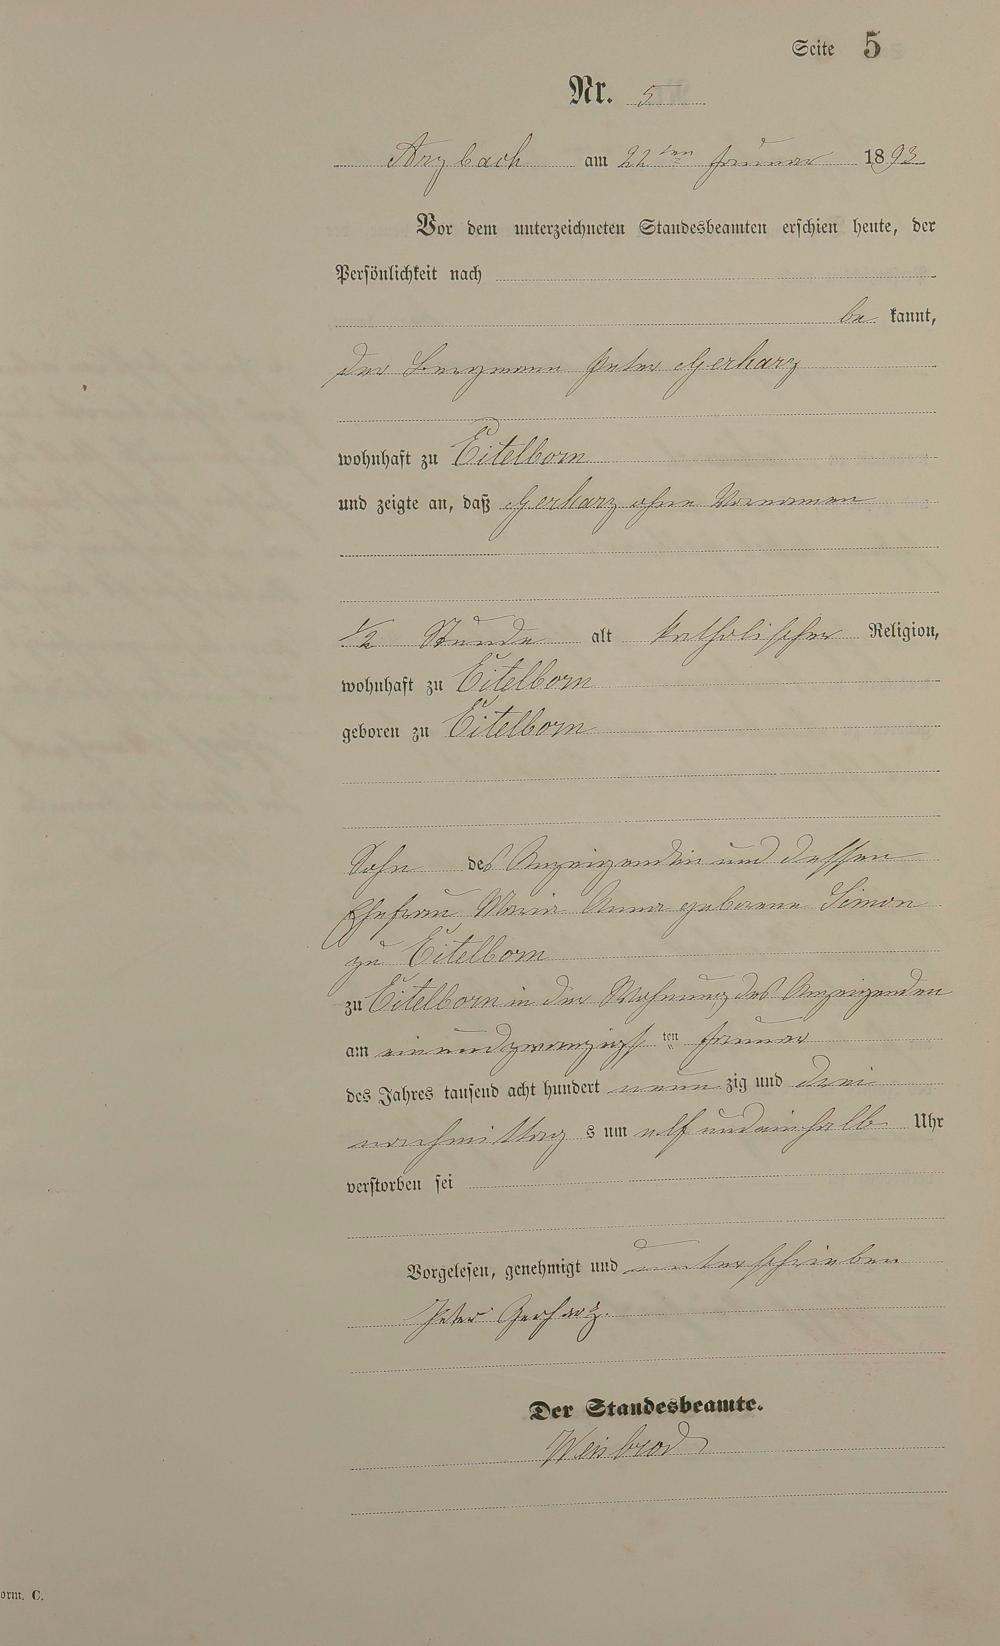 Seite 5
Nr. 5
Arzbach am 22 ten Januar 1893
Vor dem unterzeichneten Standesbeamten erschien heute, der
Persönlichkeit nach
be kannt,
der Bergmann Peter Gerharz
wohnhaft zu Eitelborn
und zeigte an, daß Gerharz ohne Vornamen
1/2 Stunde alt katholischer Religion,
wohnhaft zu Eitelborn
geboren zu Eitelborn
Sohn des Anzeigenden und dessen
Ehefrau Maria Anna geborene Simon
zu Eitelborn
zu Eitelborn in der Wohnung des Anzeigenden
am einundzwanzigsten Januar
des Jahres tausend acht hundert neunzig und drei
nachmittags um elf undeinhalb Uhr
verstorben sei
Vorgelesen, genehmigt und unterschrieben
Peter Gerharz.
Der Standesbeamte.
Weisbrod
orm. C.